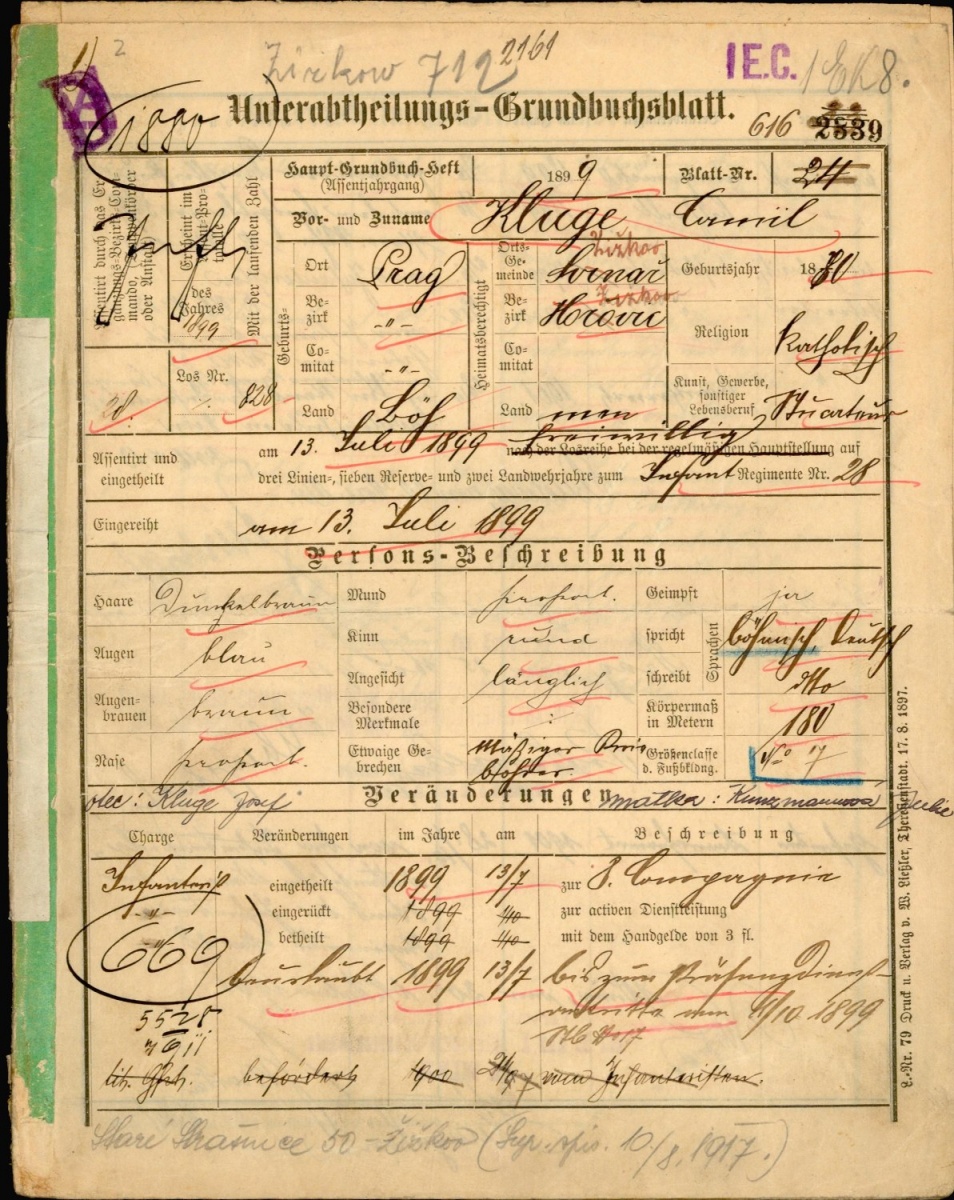 2
Žižkow 712 2161
I E.C. 1 EK 8.
1880
Unterabtheilungs-Grundbuchsblatt.
616 2339
Haupt-Grundbuch-Heft
(Assentjahrgang)
1899
Blatt-Nr.
24
Assentirt durch das Ergänzungs-Bezirks-Commando, (Truppenkörper oder Anstalt)
Erscheint im Assent-Protokolle
des Jahres
1899
Mit der laufenden Zahl
28.
Los Nr.
828
Vor- und Zuname
Kluge Camill
Geburts-
Ort
Prag
Bezirk
-"-
Comitat
-"-
Land
Böh
Heimatsberechtigt
Žižkov
Orts-Gemeinde
Svinař
Žižkov
Bezirk
Hořovic
Comitat
Land
men
Geburtsjahr
1880
Religion
Katholisch
Kunst, Gewerbe, sonstiger Lebensberuf
Stucateur
Assentirt und eingetheilt
am 13. Juli 1899 freiwillig
nach der Losreihe bei der regelmäßigen Hauptstellung auf
drei Linien-, sieben Reserve- und zwei Landwehrjahre zum Infant Regimente Nr. 28
Eingereiht
am 13. Juli 1899
Persons-Beschreibung
Haare
Dunkelbraun
Mund
proport.
Geimpft
ja
Augen
blau
Kinn
rund
Sprachen
spricht
böhmisch, deutsch
Angesicht
länglich
schreibt
dtto
Augenbrauen
braun
Besondere Merkmale
Körpermaß in Metern
180
Nase
proport.
Etwaige Gebrechen
Mäßiger
Größenclasse d. Fußbkldng.
No 7
otec: Kluge Josef
Veränderungen
matka: Kunzmannová Julie
Charge
Veränderungen
im Jahre
am
Beschreibung
Infanterist
eingetheilt
1899
13/7
zur 8. Compagnie
-"-
eingerückt
1899
1/10
zur activen Dienstleistung
669
betheilt
1899
1/10
mit dem Handgelde von 3 fl.
beurlaubt
1899
13/7
bis zum Präsenzdienst-
antritte am 1/10. 1899
5528
tit. Gfrt.
befördert
1900
vom Infanteristen.
Staré Strašnice 50 - Žižkov (Sup. spis. 10/8. 1917.)
L.-Nr. 79 Druck u. Verlag v. W. Ließler, Theresienstadt. 17. 8. 1897.